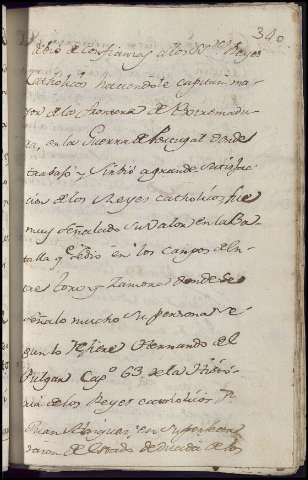 340
debio de confianzas a los SS.res Reyes
Catholicos haciendole capitan ma-
yor de la frontera de Extremadu-
ra, en la Guerra de Portugal donde
trabajó y Sirbió a grande Satisfac-
cion de los Reyes catholicos, fue
muy Señalado Su valor en la Ba-
talla q Se dio en los campos de En-
tre Toro y Zamora donde Se
Señalo mucho Su persona se-
gun lo refiere Hernando del
Pulgar Cap.o 63 de la Histo-
ria de los Reyes catholicos
Juan en Su
de Estado dedicada de los